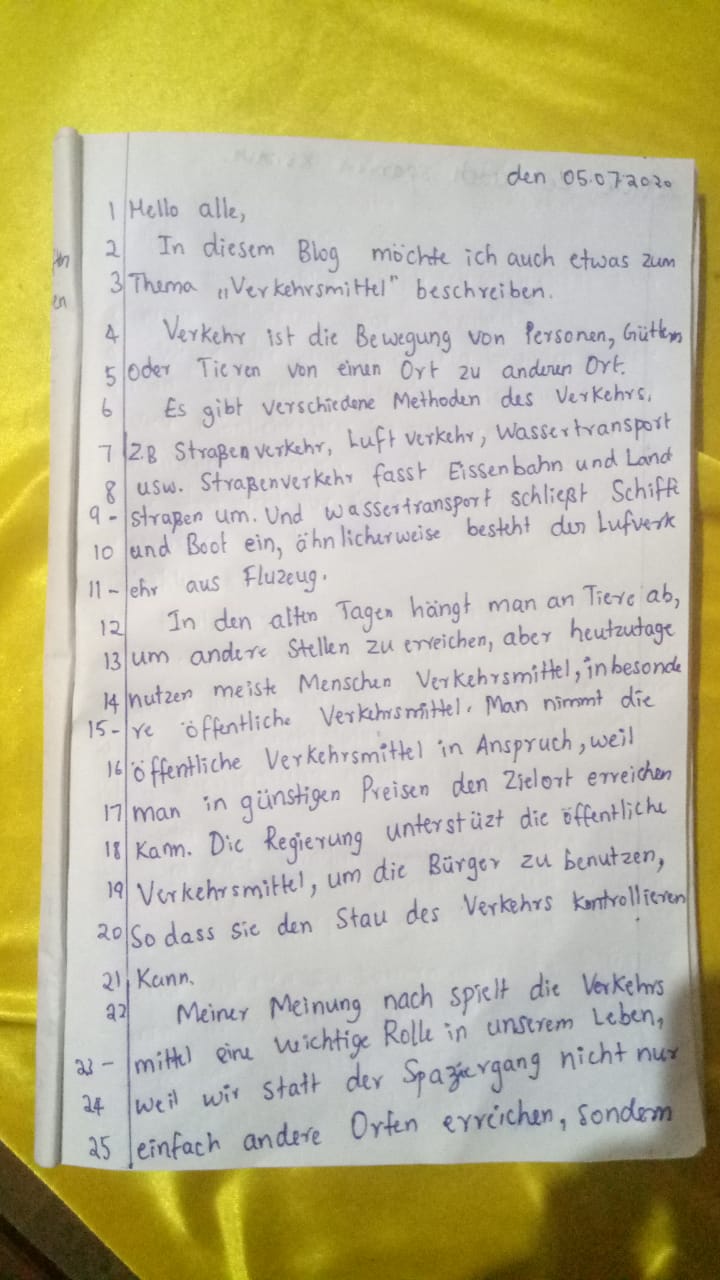 den 05.07.2020
1 Hello alle,
2 In diesem Blog möchte ich auch etwas zum
3 Thema „Verkehrsmittel" beschreiben.
4 Verkehr ist die Bewegung von Personen, Güttern
5 oder Tieren von einen Ort zu anderen Ort.
6 Es gibt verschiedene Methoden des Verkehrs,
7 Z.B Straßenverkehr, Luftverkehr, Wassertransport
8 usw. Straßenverkehr fasst Eissenbahn und Land
9 - straßen um. Und wassertransport schließt Schiff
10 und Boot ein, ähnlicherweise besteht der Lufverk
11 - ehr aus Fluzeug.
12 In den alten Tagen hängt man an Tiere ab,
13 um andere Stellen zu erreichen, aber heutzutage
14 nutzen meiste Menschen Verkehrsmittel, inbesonde
15 - re öffentliche Verkehrsmittel. Man nimmt die
16 öffentliche Verkehrsmittel in Anspruch, weil
17 man in günstigen Preisen den Zielort erreichen
18 Kann. Die Regierung unterstüzt die öffentliche
19 Verkehrsmittel, um die Bürger zu benutzen,
20 So dass sie den Stau des Verkehrs kontrollieren
21 Kann.
22 Meiner Meinung nach spielt die Verkehrs
23 - mittel eine wichtige Rolle in unserem Leben,
24 weil wir statt der Spaziergang nicht nur
25 einfach andere Orten erreichen, sondern